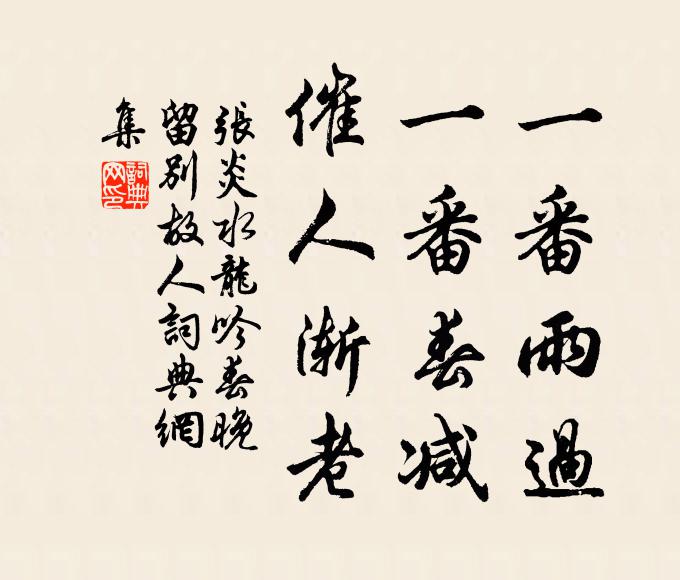 一番雨過
一番春減
催人漸老
張炎水龍吟春晚
留別故人詞典網
集
詞典
网印